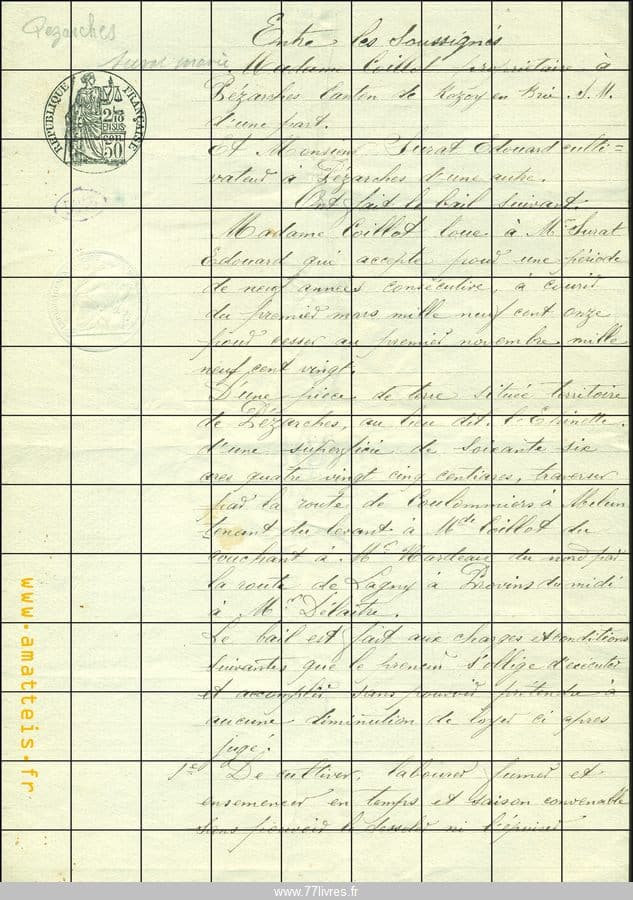 Pezarches
Entre les Soussignés
Madame Coillot propriétaire à
Pézarches Canton de Rozoy en Brie. S. M.
d'une part.
Et Monsieur Surat Edouard culti=
vateur à Pezarches d'une autre.
Ont fait le bail suivant.
Madame Coillot loue à Mr Surat
Edouard qui accepte pour une période
de neuf années consécutive, à courir
du premier mars mille neuf cent onze
pour cesser au premier novembre mille
neuf cent vingt.
D'une pièce de terre située territoire
de Pézarches, au lieu dit l'Epinette.
d'une superficie de soixante six
ares quatre vingt cinq centiares, traverser
par la route de Coulommiers à Melun
tenant du levant à Mde Coillot du
couchant à Mr Hardeau du nord par
la route de Lagny à Provins du midi
à Mr Delaitre.
Le bail est fait aux charges et conditions
suivantes que le preneur s'oblige d'exécuter
et accomplir sans pouvoir prétendre à
aucune diminution de loyer ci après
jugé.
1e De cultiver, labourer fumer et
ensemencer en temps et saison convenable
sans pouvoir le dessoler ni l'épuiser
REPUBLIQUE FRANÇAISE
2/10
EN SUS
50
www.amatteis.fr
www.77livres.fr